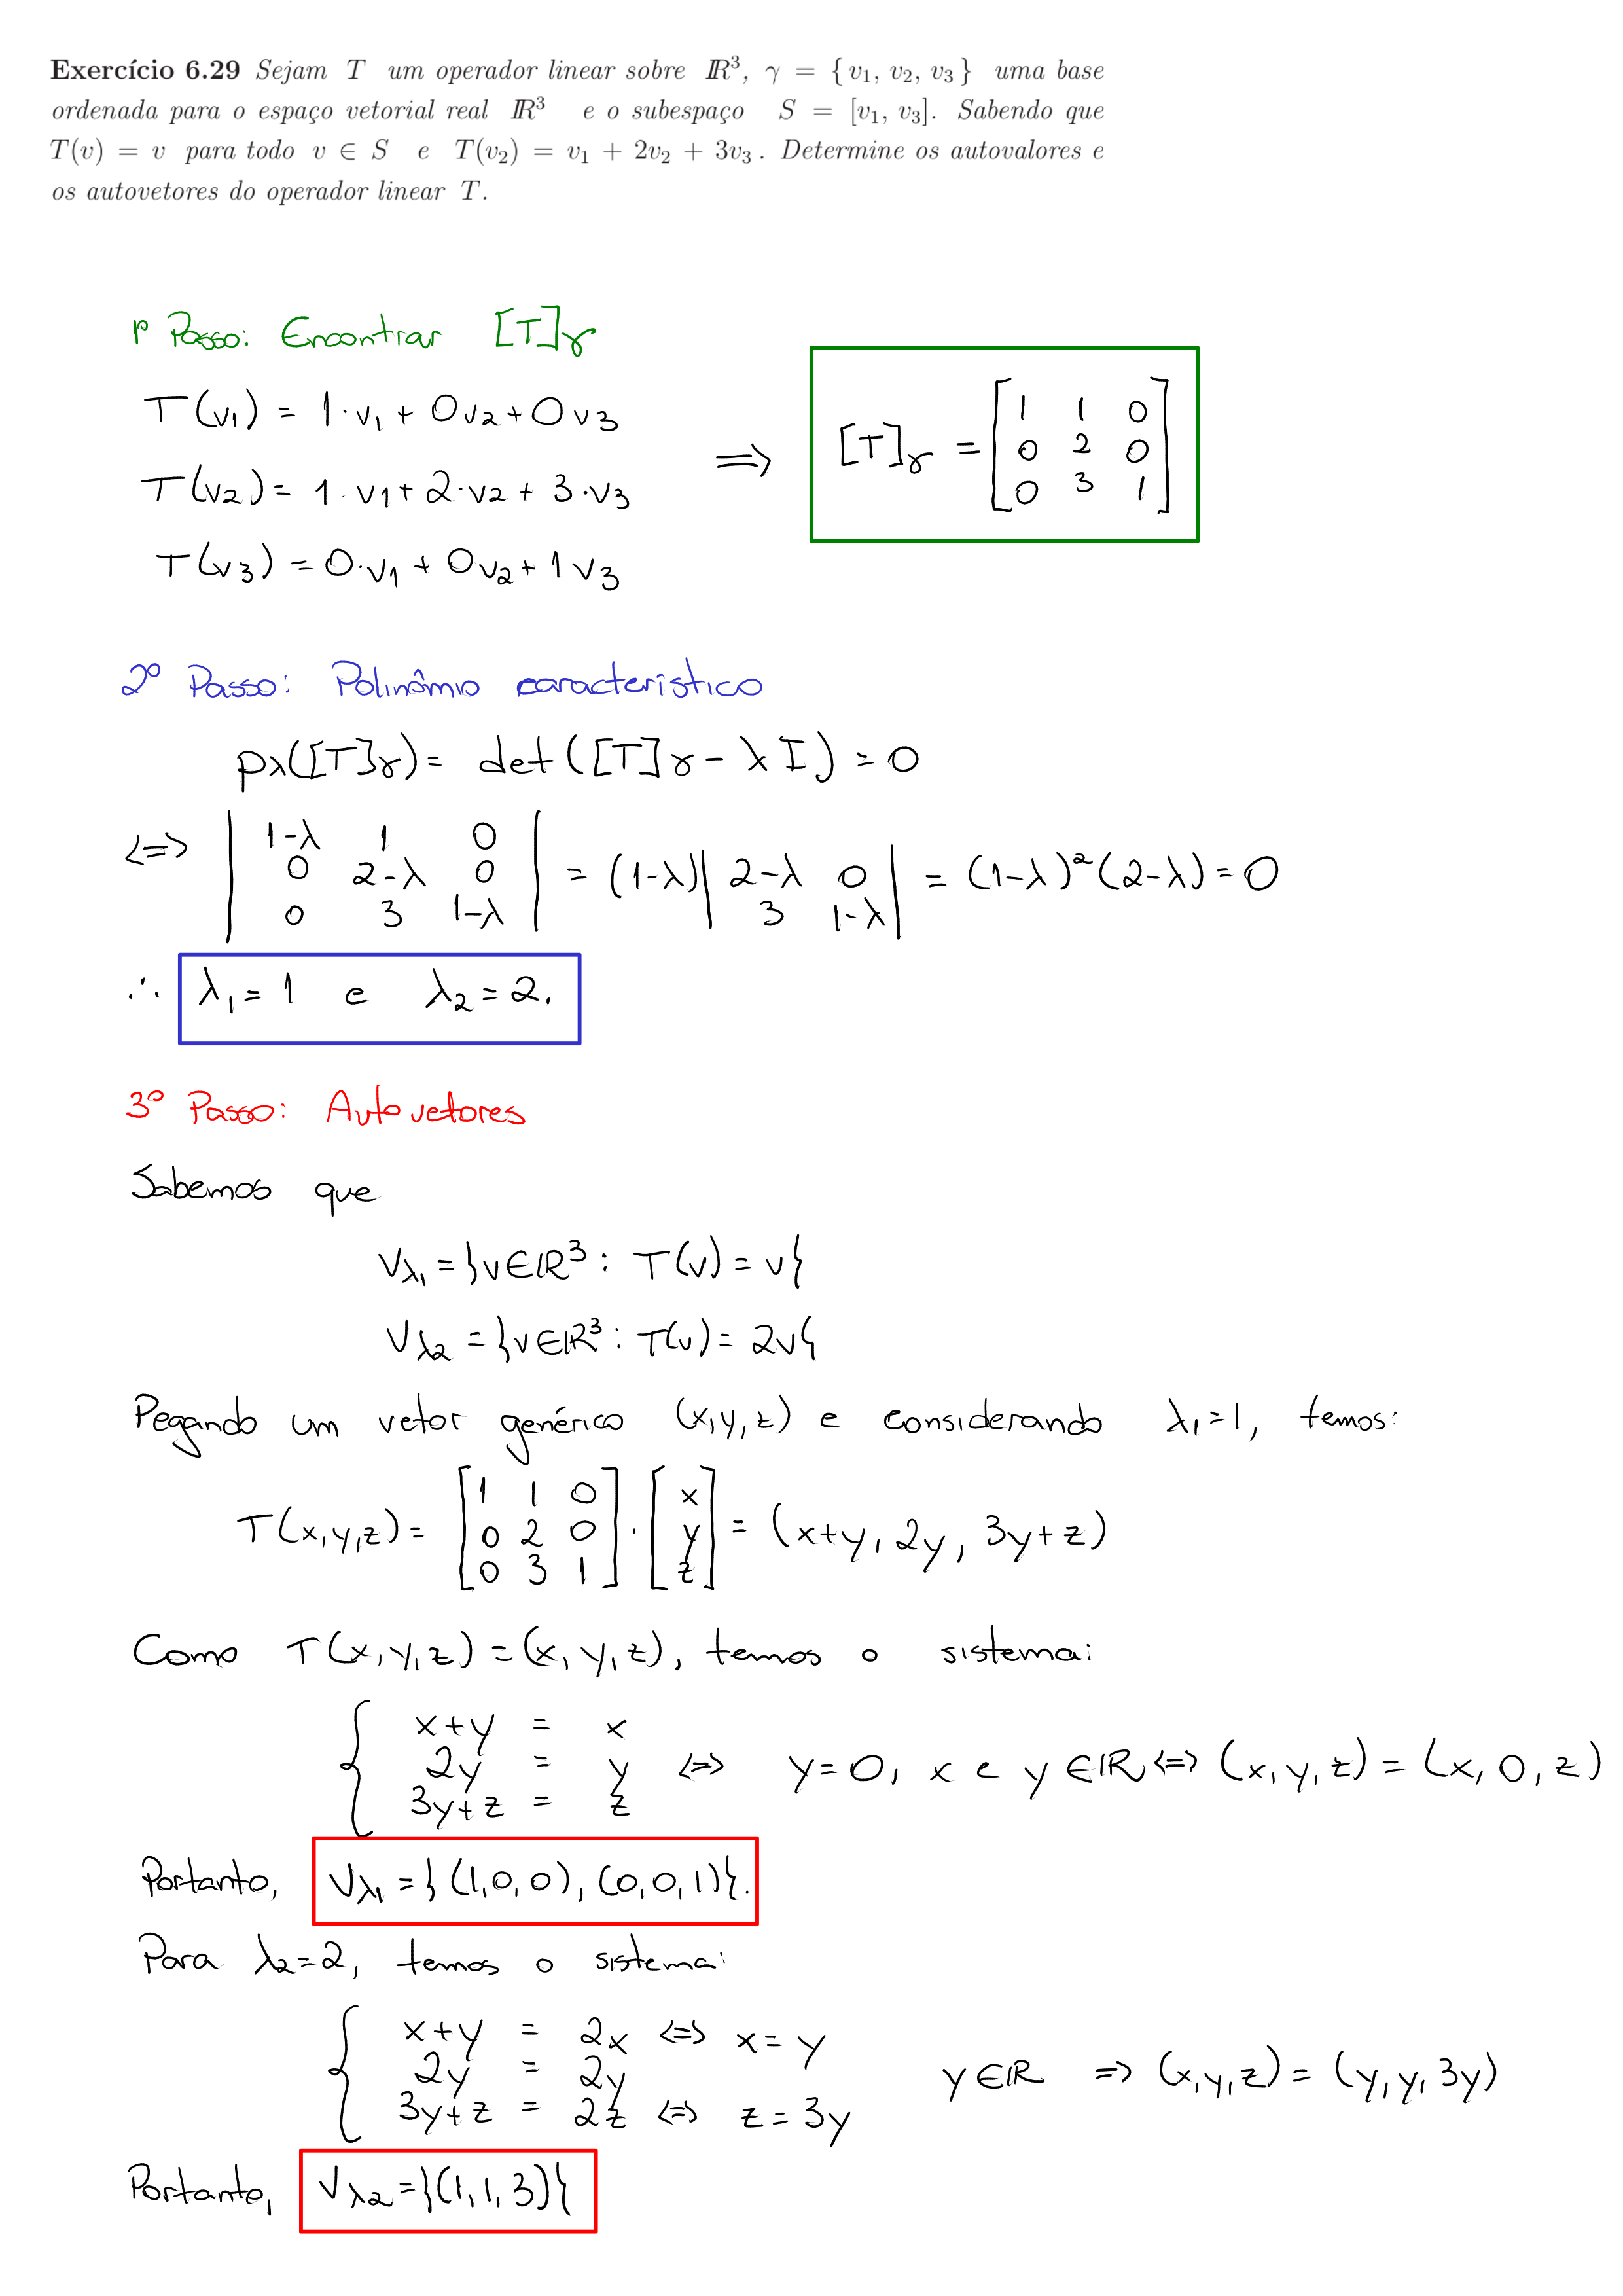 Exercício 6.29 Sejam T um operador linear sobre ℝ³, γ = { v₁, v₂, v₃ } uma base
ordenada para o espaço vetorial real ℝ³ e o subespaço S = [v₁, v₃]. Sabendo que
T(v) = v para todo v ∈ S e T(v₂) = v₁ + 2v₂ + 3v₃ . Determine os autovalores e
os autovetores do operador linear T.
1º Passo: Encontrar [T]γ
T(v₁) = 1·v₁ + 0v₂ + 0v₃
T(v₂) = 1·v₁ + 2·v₂ + 3·v₃
T(v₃) = 0·v₁ + 0v₂ + 1v₃
⇒ [T]γ = [1 1 0
0 2 0
0 3 1]
2º Passo: Polinômio característico
pλ([T]γ) = det([T]γ - λI) = 0
<=> | 1-λ 1 0
0 2-λ 0
0 3 1-λ | = (1-λ) | 2-λ 0
3 1-λ | = (1-λ)²(2-λ) = 0
∴ λ₁ = 1 e λ₂ = 2.
3º Passo: Autovetores
Sabemos que
Vλ₁ = {v∈ℝ³ : T(v) = v}
Vλ₂ = {v∈ℝ³ : T(v) = 2v}
Pegando um vetor genérico (x,y,z) e considerando λ₁=1, temos:
T(x,y,z) = [1 1 0
0 2 0
0 3 1] · [x
y
z] = (x+y, 2y, 3y+z)
Como T(x,y,z) = (x,y,z), temos o sistema:
{ x+y = x
2y = y <=> y=0, x e y ∈ℝ <=> (x,y,z) = (x,0,z)
3y+z = z
Portanto, Vλ₁ = { (1,0,0), (0,0,1)}.
Para λ₂=2, temos o sistema:
{ x+y = 2x <=> x = y
2y = 2y y∈ℝ => (x,y,z) = (y,y,3y)
3y+z = 2z <=> z = 3y
Portanto, Vλ₂ = {(1,1,3)}